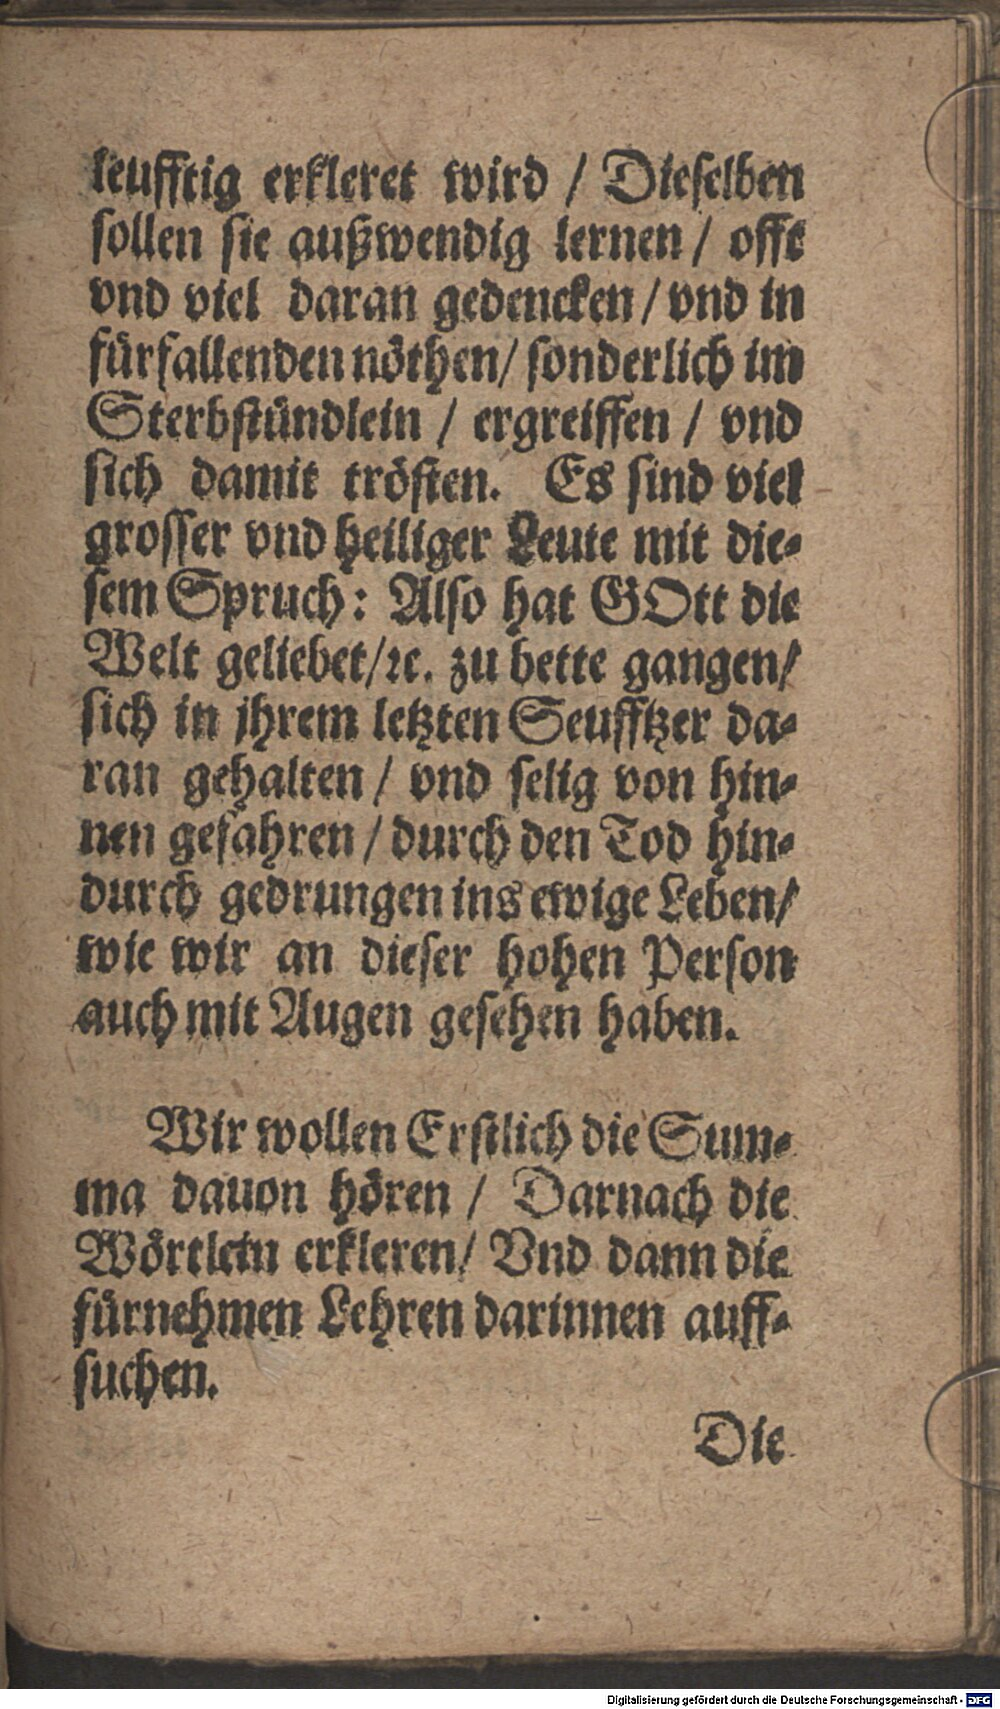 leufftig erkleret wird / Dieselben
sollen sie außwendig lernen / offt
vnd viel daran gedencken / vnd in
fürfallenden nöthen / sonderlich im
Sterbstündlein / ergreiffen / vnd
sich damit trösten. Es sind viel
grosser vnd heiliger Leute mit die-
sem Spruch: Also hat GOtt die
Welt geliebet / ꝛc. zu bette gangen /
sich in jhrem letzten Seufftzer da-
ran gehalten / vnd selig von hin-
nen gefahren / durch den Tod hin-
durch gedrungen ins ewige Leben /
wie wir an dieser hohen Person
auch mit Augen gesehen haben.
Wir wollen Erstlich die Sum-
ma dauon hören / Darnach die
Wörtlein erkleren / Vnd dann die
fürnehmen Lehren darinnen auff-
suchen.
Die
Digitalisierung gefördert durch die Deutsche Forschungsgemeinschaft - DFG